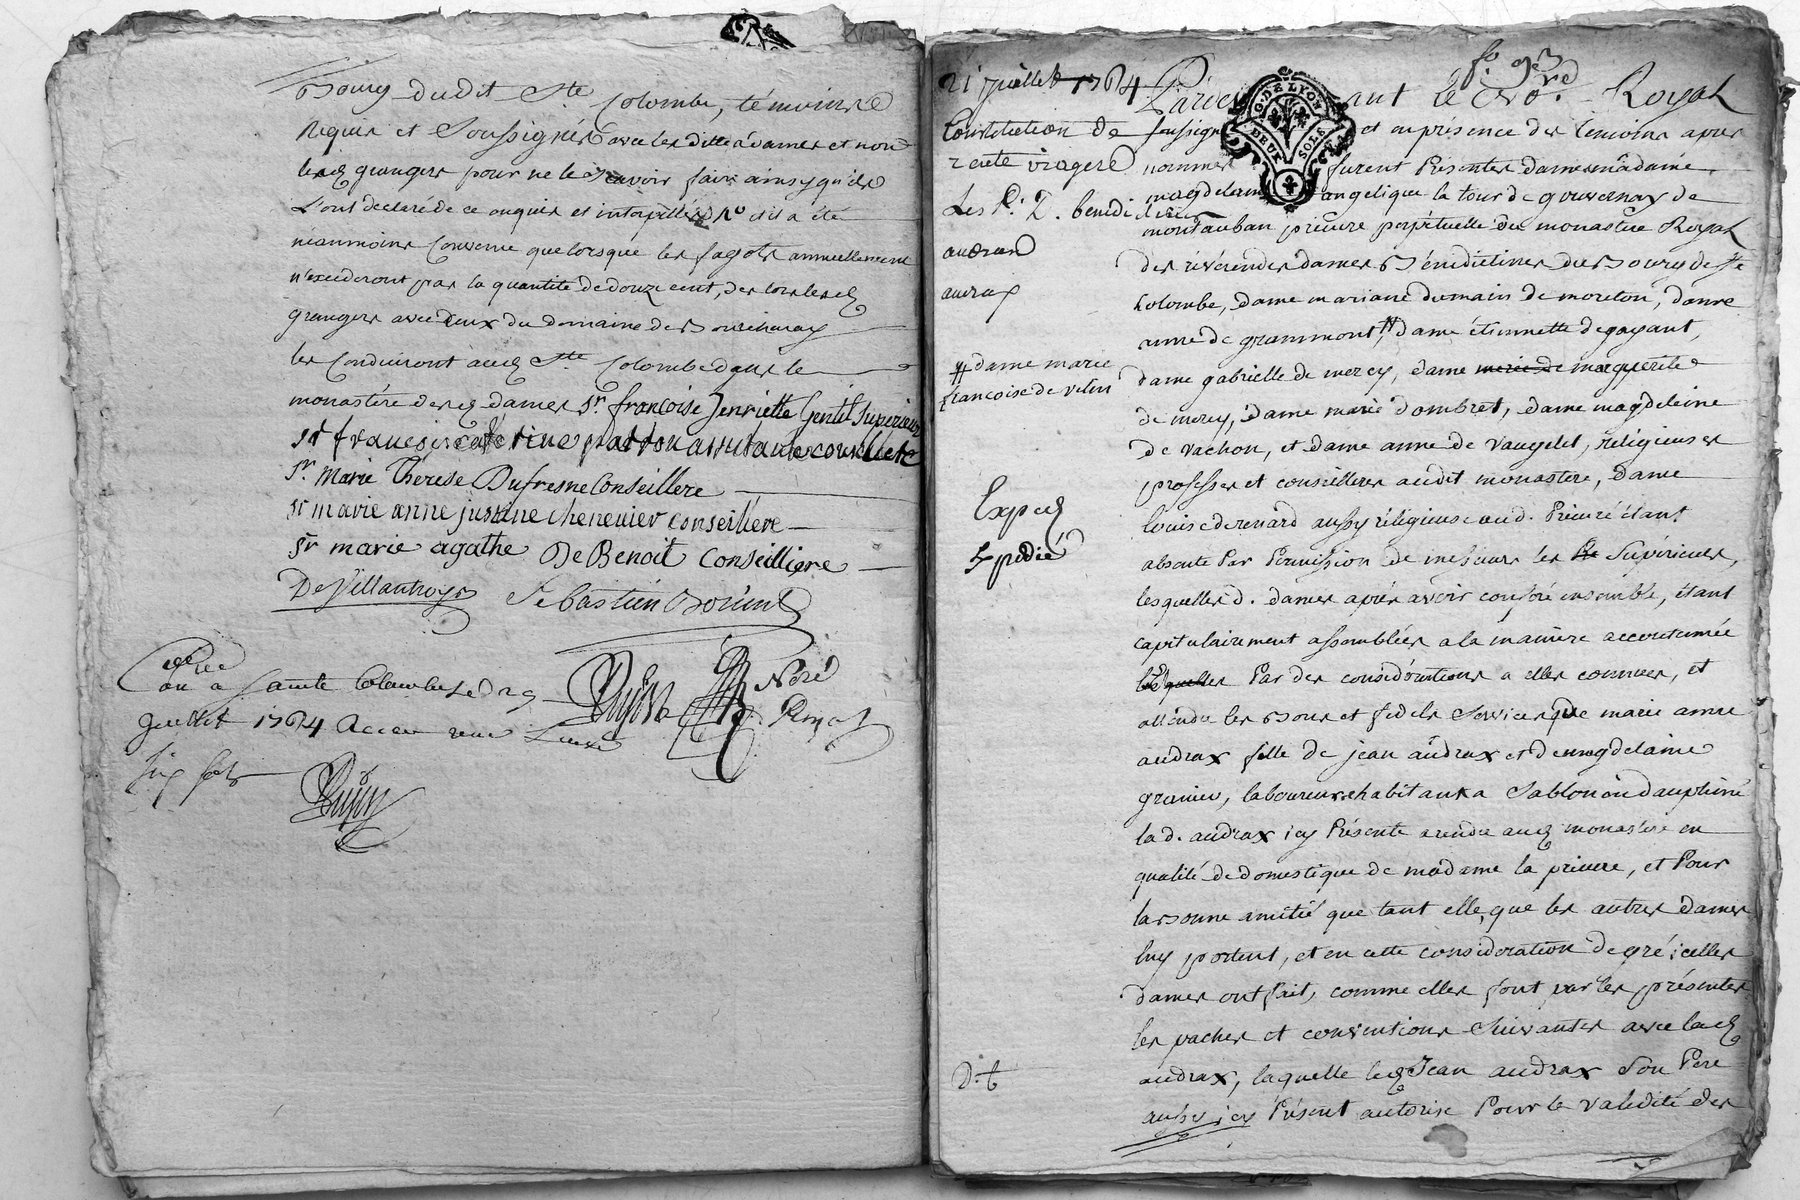 Bourg dudit Ste Colombe, témoins
Requis et Soussignés avec lesditte dames et non
granger pour ne le scavoir faire ainsy qu'ils
L'ont declaré de ce enquis et interpellés et il a été
néanmoins Convenu que lorsque les fagots annuellement
n'excederont pas la quantité de douze cent, des lors
grangers avec ceux du domaine de
les Conduiront Ste Colombe dans le
monastére dames Sr. françoise Henriette Gentil Superieure
Sr marie Therese Dufresne Conseillere
Sr marie anne justine chenevier conseillere
Sr marie agathe De Benoit Conseilliere
De Villantroys Sebastien
a Sainte Colombe Le
juillet 1764
six sols
fo. 93
21 juillet 1764
Constitution de
rente viagere
Les R. D. benedictines
audran
audrax
# dame marie
francoise de velin
Expedié
D. t
Parde ant le No.re Royal
soussign et en présence des temoins apres
nommes furent Présentes dames madame
magdelaine angelique la tour de gouvernay de
montauban prieure perpétuelle du monastere Royal
des révérendes dames Bénédictines du Bourg de Ste
Colombe, Dame mariane dumain de moreton, dame
anne de grammont, # dame étiennette de gayant,
dame gabrielle de mercy, dame marie de marguerite
de mercy, dame marie dombret, dame magdeleine
de vachon, et dame anne de vaugelet, religieuses
professes et conseilleres audit monastere, dame
louise de renard aussy réligieuse aud. Prieuré étant
absente Par Permission de messieurs les Supérieurs,
lesquelles d. dames après avoir conféré ensemble, étant
capitulairement assemblées a la maniere accoutumée
Par des considérations a elles connues, et
attendu les Bons et fidels Services que marie anne
audrax fille de jean audrax et de magdelaine
granier, laboureurs habitants a Sablon en dauphiné
la d. audrax icy Présente a rendu monastere en
qualité de domestique de madame la prieure, et Pour
la Bonne amitié que tant elle, que les autres Dames
luy portent, et en cette considération de gré icelles
dames ont fait, comme elles font par les présentes
les paches et conventions suivantes avec lad.
audrax, laquelle led. Jean audrax Son Pere
aussy icy Présent autorise Pour la validité des